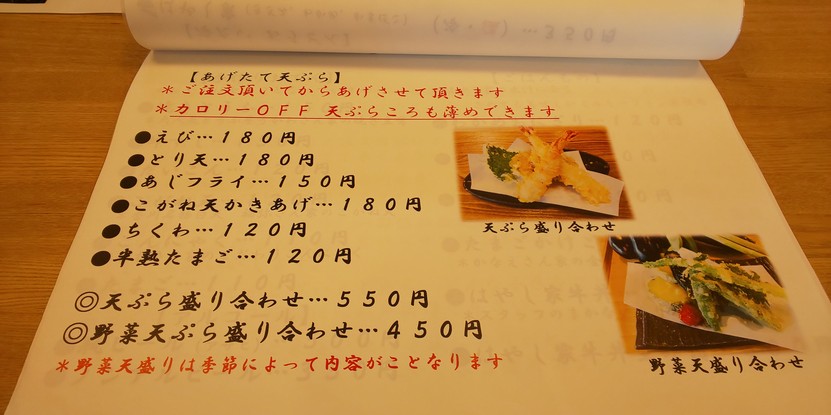 【あげたて天ぷら】
＊ご注文頂いてからあげさせて頂きます
＊カロリーOFF 天ぷらころも薄めできます
●えび…180円
●とり天…180円
●あじフライ…150円
●こがね天かきあげ…180円
●ちくわ…120円
●半熟たまご…120円
◎天ぷら盛り合わせ…550円
◎野菜天ぷら盛り合わせ…450円
＊野菜天盛りは季節によって内容がことなります
天ぷら盛り合わせ
野菜天盛り合わせ